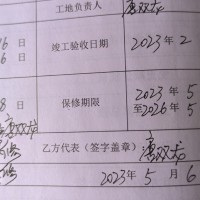 工地负责人 唐双龙
16日 竣工验收日期 2023年2
6日
8日 保修期限 2023年5
至2026年5
唐双龙
乙方代表（签字盖章） 唐双龙
2023年5月6